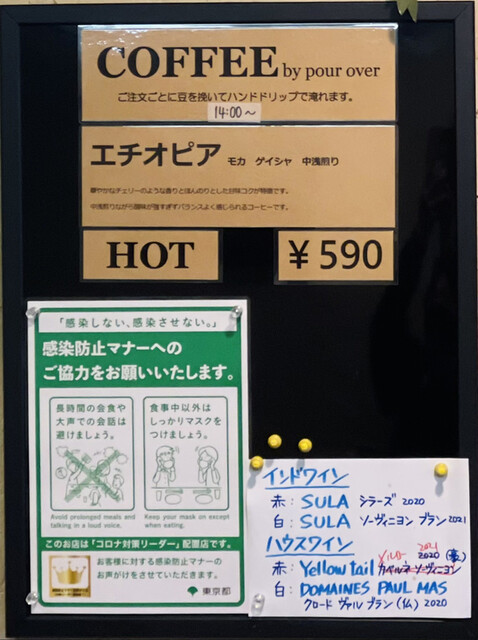 COFFEE by pour over
ご注文ごとに豆を挽いてハンドドリップで淹れます。
14:00〜
エチオピア モカ ゲイシャ 中浅煎り
華やかなチェリーのような香りとほんのりとした甘味コクが特徴です。
中浅煎りながら酸味が強すぎずバランスよく感じられるコーヒーです。
HOT
¥590
「感染しない、感染させない。」
感染防止マナーへの
ご協力をお願いいたします。
長時間の会食や
大声での会話は
避けましょう。
Avoid prolonged meals and
talking in a loud voice.
食事中以外は
しっかりマスクを
つけましょう。
Keep your mask on except
when eating.
このお店は「コロナ対策リーダー」配置店です。
お客様に対する感染防止マナーの
お声がけをさせていただきます。
東京都
インドワイン
赤: SULA シラーズ 2020
白: SULA ソーヴィニヨン ブラン 2021
ハウスワイン
2021
赤: Yellow tail カベルネ・ソーヴィニヨン 2020 (豪)
白: DOMAINES PAUL MAS
クロード ヴァル ブラン (仏) 2020